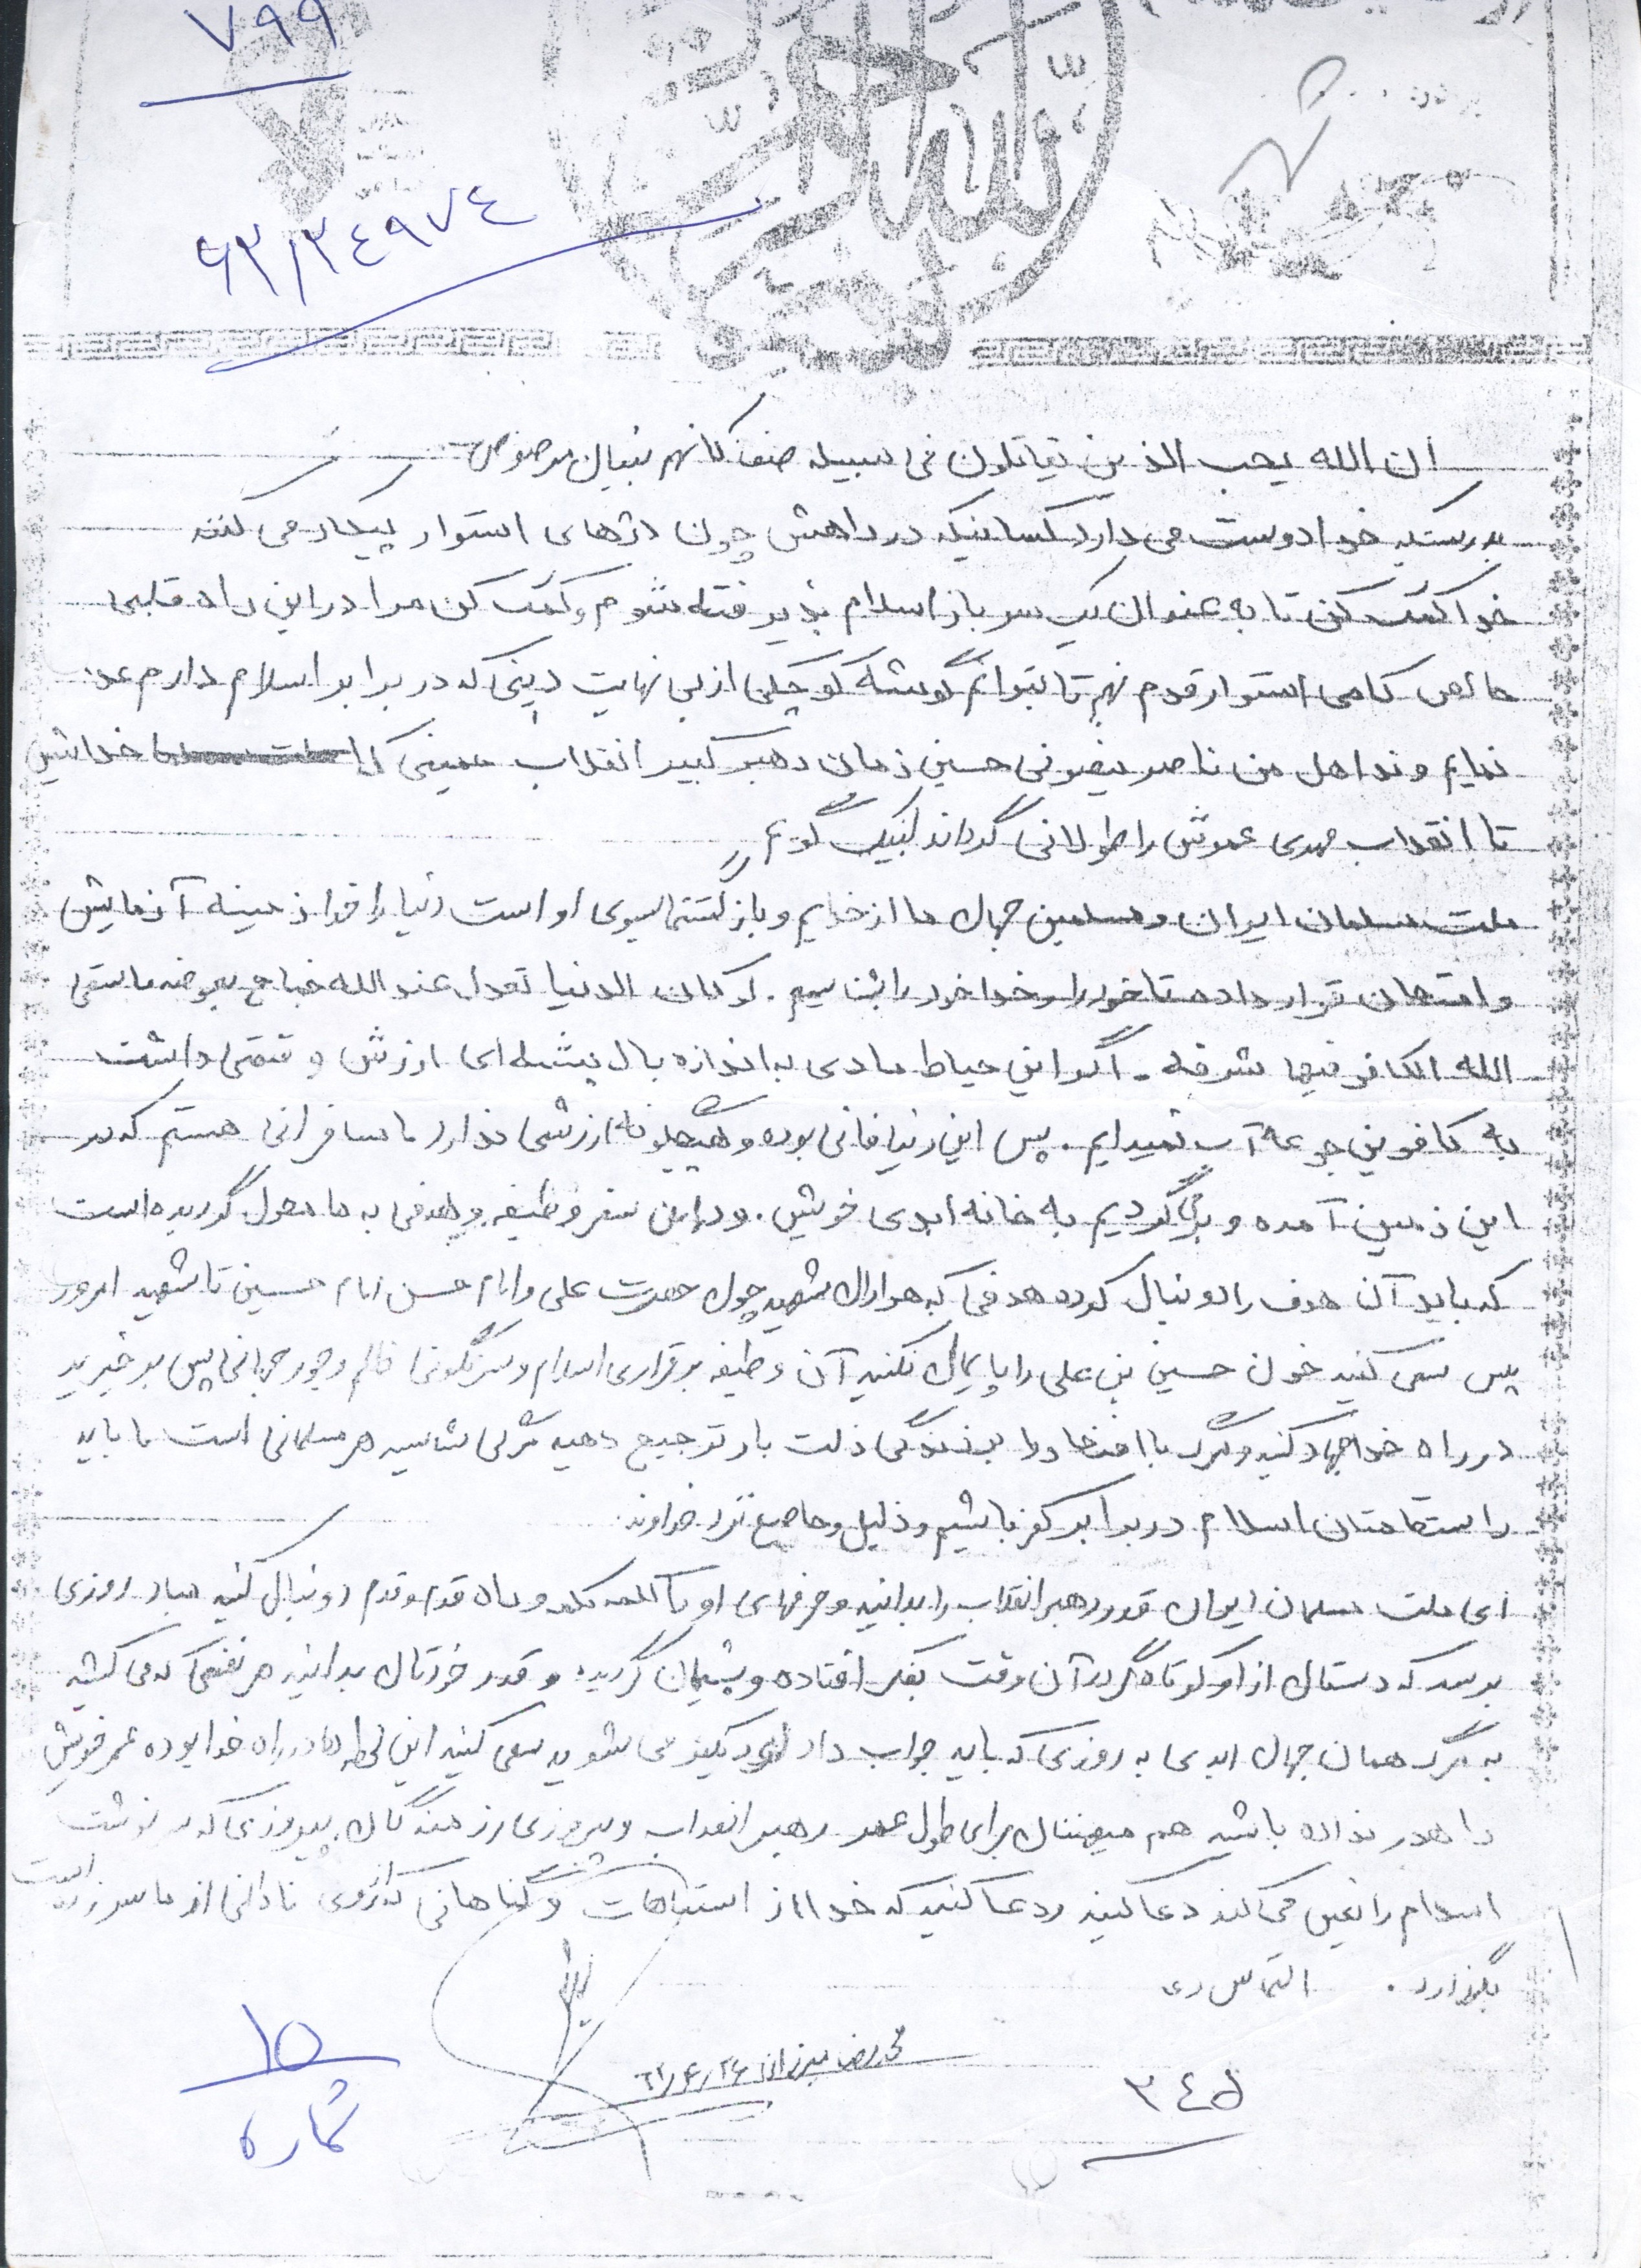 ۷۹۹
۶۳/۳۴۹۷۴
ان الله یحب الذین یقاتلون فی سبیله صفا کانهم بنیان مرصوص
بدرستیکه خدا دوست می دارد کسانیکه در راهش چون دژهای استوار پیکار می کنند
خدا کمک کن تا به عنوان یک سرباز اسلام پذیرفته شوم و کمک کن مرا در این راه قلبی
خالص گامی استوار قدم نهم تا بتوانم گوشه کوچکی از بی نهایت دینی که در برابر اسلام دارم
نمایم و ندا هل من ناصر ینصرنی حسین زمان رهبر کبیر انقلاب خمینی که خدایش
تا انقلاب مهدی عمرش را طولانی گرداند لبیک گویم
ملت مسلمان ایران و مسلمین جهان ما از خدایم و بازگشتمان بسوی او است دنیا را خدا زمینه آزمایش
و امتحان قرار داده تا خود را و خدا خود را بشناسیم. لو کان الدنیا تعدل عند الله جناح بعوضه ما سقی
الله الکافر فیها شرفه . اگر این حیاط مادی به اندازه بال پشه ای ارزش و قیمتی داشت
به کافرین جرعه آب نمیدایم. پس این دنیا فانی بوده و هیچگونه ارزشی ندارد ما مسافرانی هستم که در
این زمین آمده و برمی گردیم به خانه ابدی خویش. و در این سفر وظیفه و هدفی به ما محول گردیده است
که باید آن هدف را دونبال کرده هدفی که هزاران شهید چون حضرت علی و امام حسن امام حسین تا شهید امروز
پس سعی کنید خون حسین بن علی را پایمال نکنید آن وظیفه برقراری اسلام و سرنگونی ظلم و جور جهانی پس برخیزید
در راه خدا جهاد کنید و مرگ با افتخار را به زندگی ذلت بار ترجیح دهید هر مسلمانی است ما باید
راست قامتان اسلام در برابر کفر باشیم و ذلیل و خاضع نزد خداوند.
ای ملت مسلمان ایران قدر رهبر انقلاب را بدانید و حرفهای او را کلمه کلمه و راه قدم و قدم دونبال کنید مباد روزی
برسد که دستان از او کوتاه گردد آن وقت بفکر افتاده و پشیمان گردید و قدر خودتان بدانید هر نفسی که می کشید
به مرگ همان جهان ابدی به روزی که باید جواب داد نزدیکتر می شوید سعی کنید این لحظه ها در راه خدا بوده عمر خویش
را هدر نداده باشید هم میهنان برای طول عمر رهبر انقلاب و پیروزی رزمندگان پیروزی که سرنوشت
اسلام را تعین می کند دعا کنید و دعا کنید که خدا از اشتباهات و گناهانی که از روی نادانی از ما سر زده است
بگذرد. التماس دعا
محمد رضا ۶۲/۴/۲۶
۳۴۵
۱۵
شماره